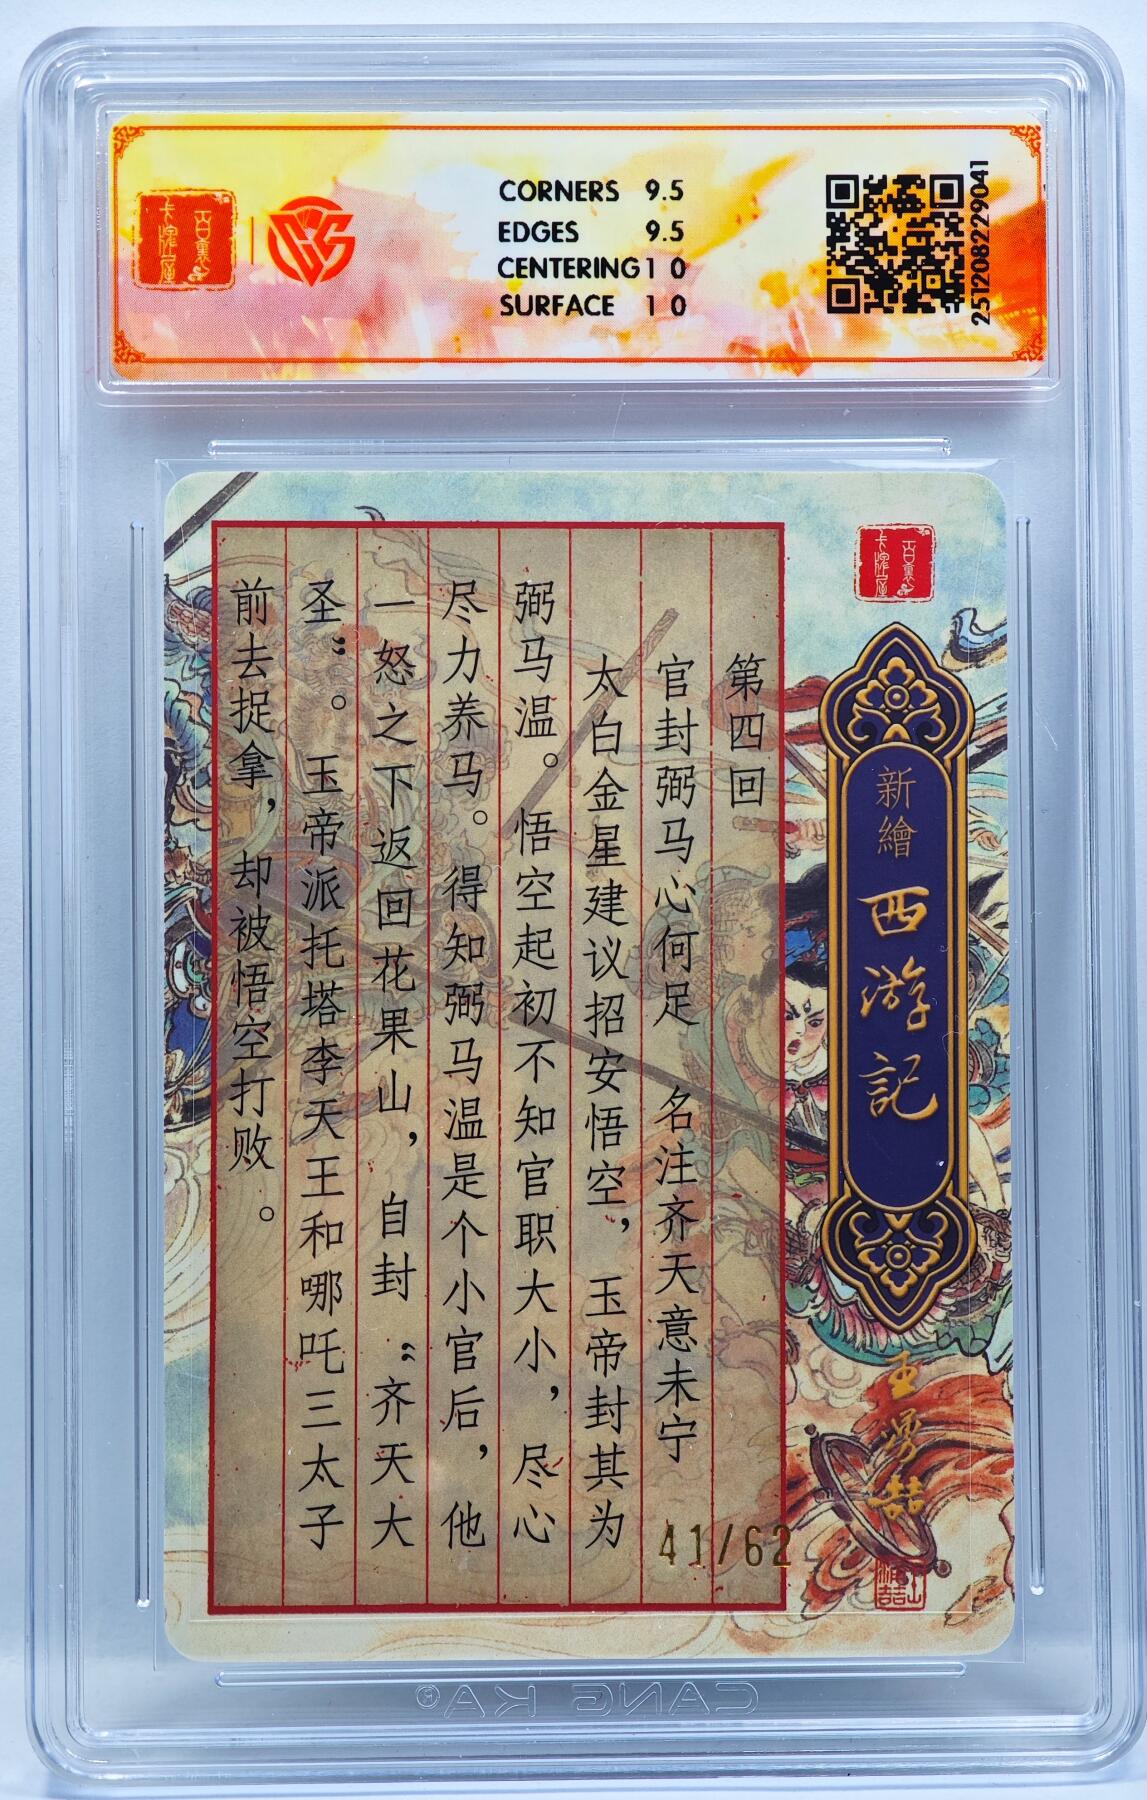 百裏
卡牌屋
CORNERS 9.5
EDGES 9.5
CENTERING 10
SURFACE 10
2512082229041
百裏
卡牌屋
新繪
西游記
第四回
官封弼马心何足 名注齐天意未宁
太白金星建议招安悟空，玉帝封其为
弼马温。悟空起初不知官职大小，尽心
尽力养马。得知弼马温是个小官后，他
一怒之下返回花果山，自封“齐天大
圣”。玉帝派托塔李天王和哪吒三太子
前去捉拿，却被悟空打败。
41/62
CANG KA®